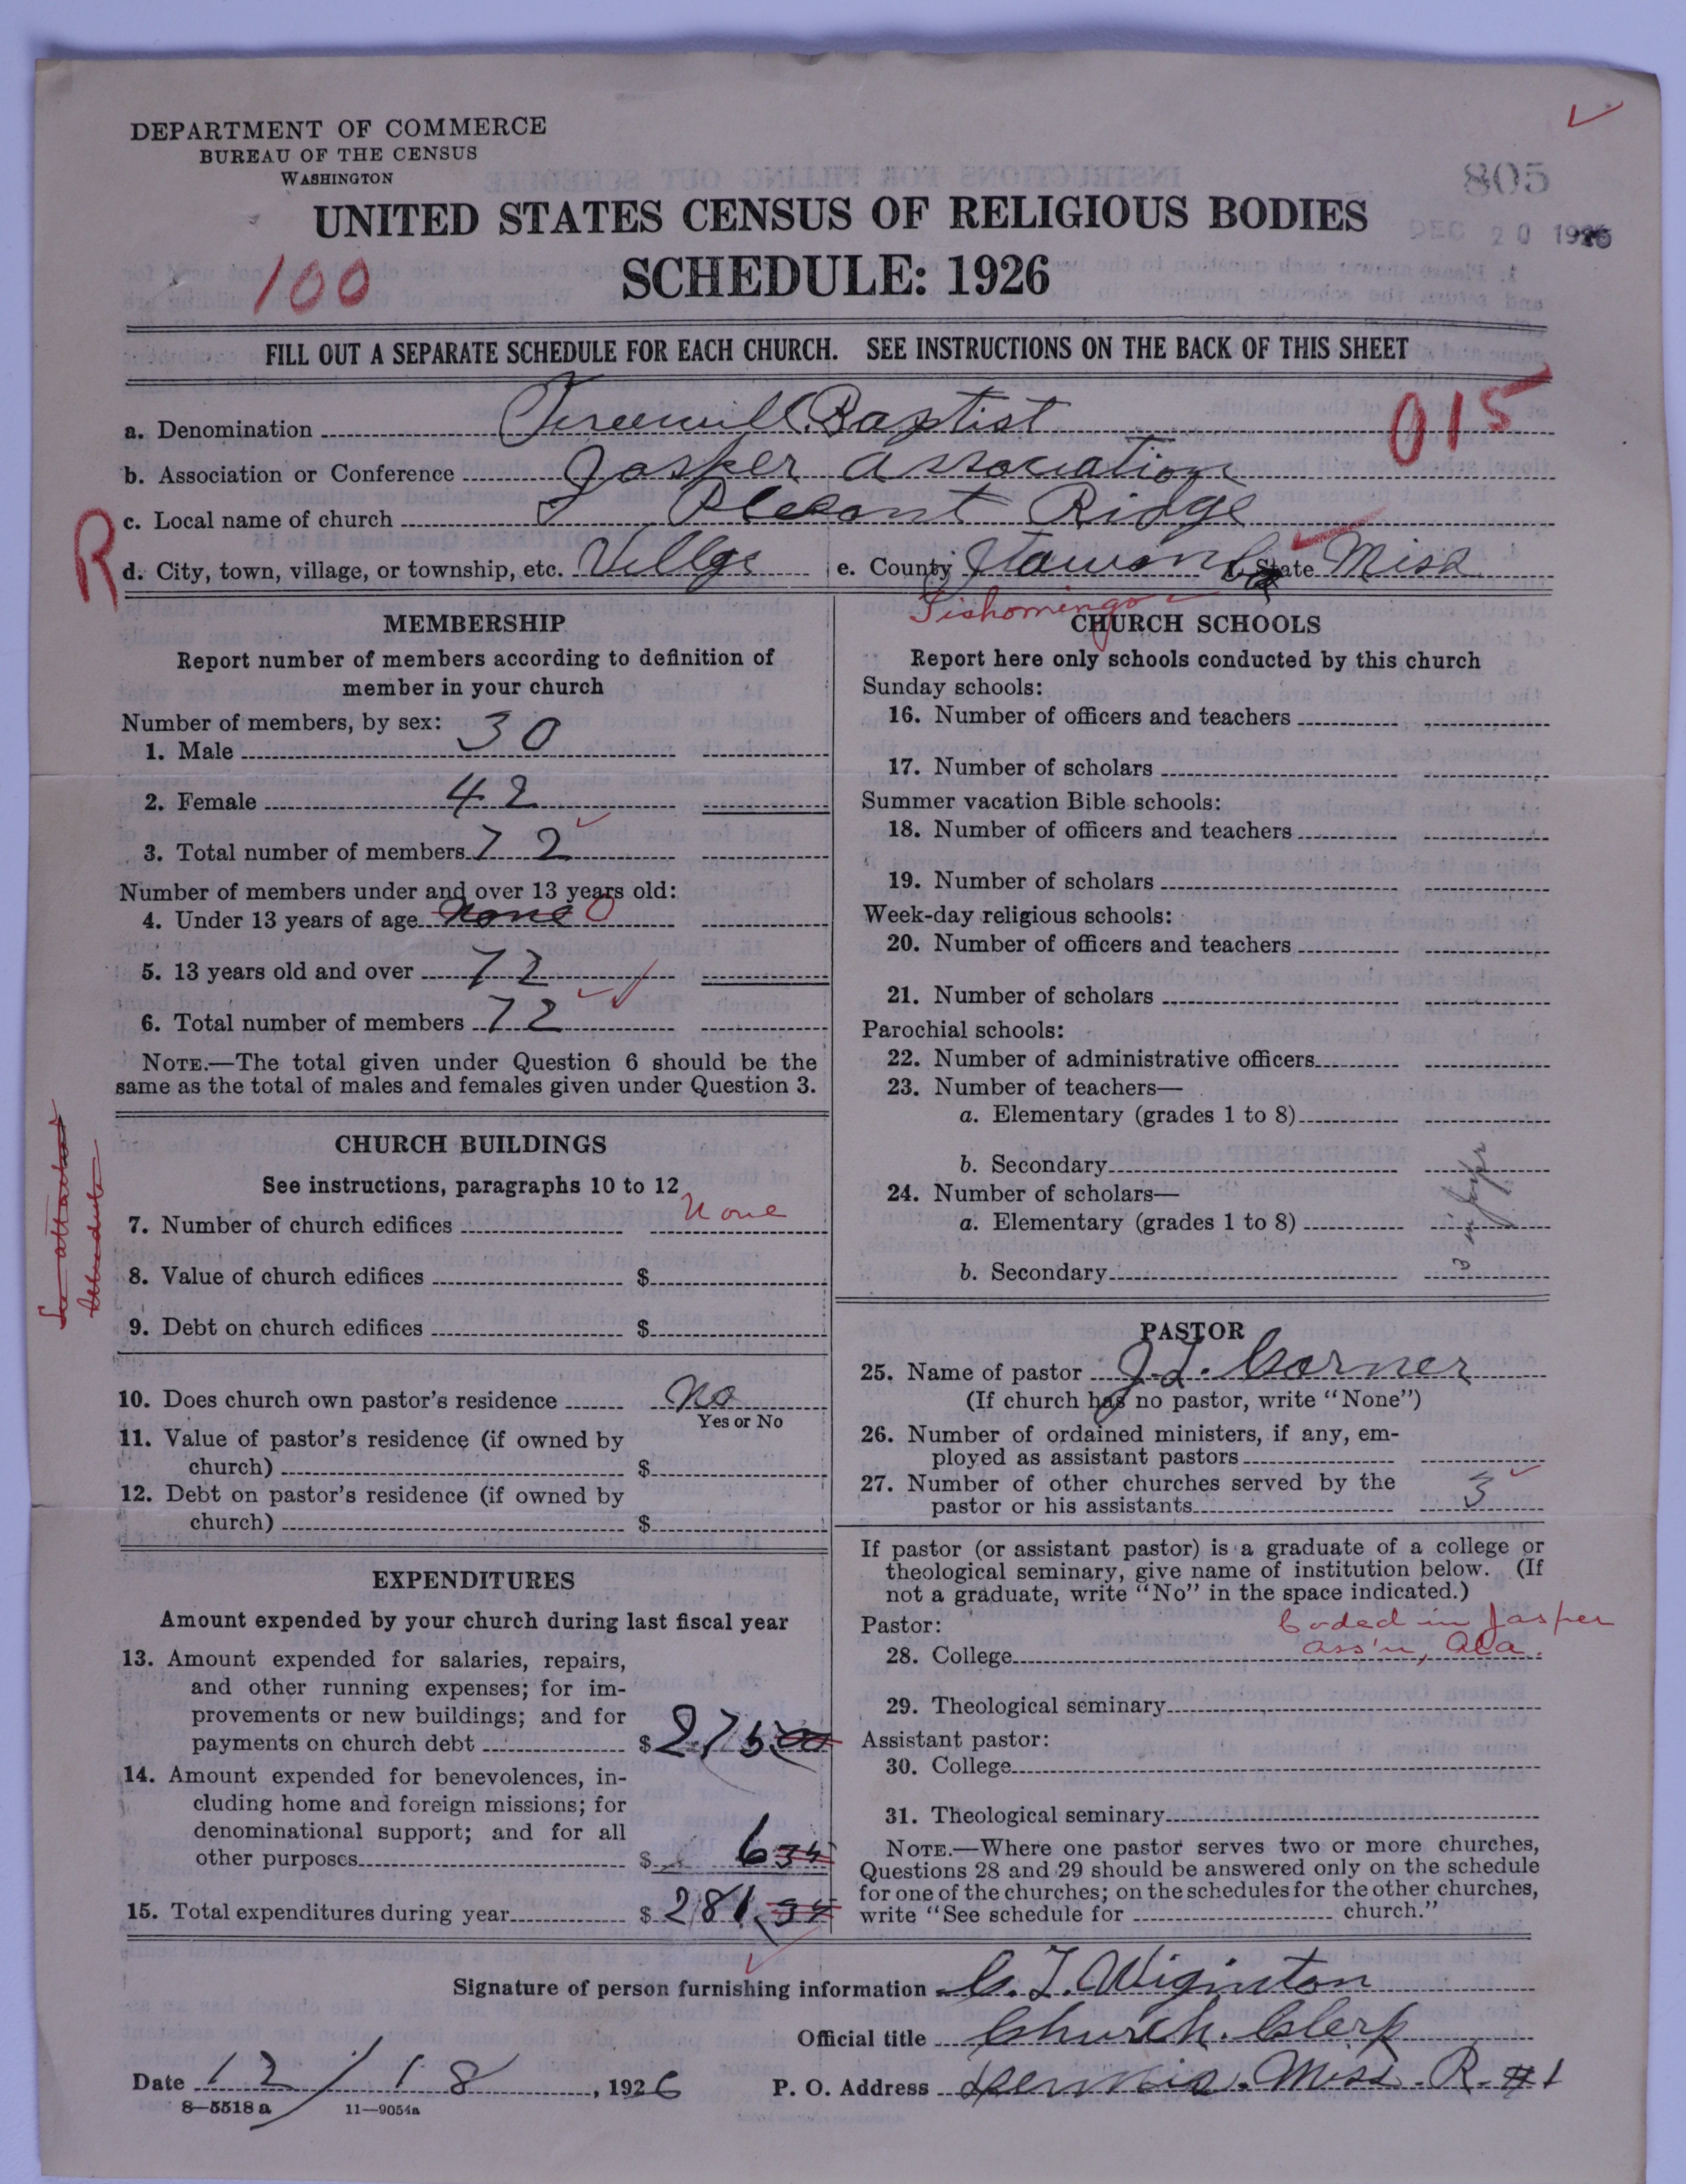 DEPARTMENT OF COMMERCE
BUREAU OF THE CENSUS
WASHINGTON
805
UNITED STATES CENSUS OF RELIGIOUS BODIES
DEC 20 1926
100
SCHEDULE: 1926
FILL OUT A SEPARATE SCHEDULE FOR EACH CHURCH. SEE INSTRUCTIONS ON THE BACK OF THIS SHEET
015
a. Denomination Freewill Baptist
b. Association or Conference Jasper Association
c. Local name of church Plesant Ridge
R
d. City, town, village, or township, etc. Villge e. County Itawamba f. State Miss
Tishomingo
MEMBERSHIP
Report number of members according to definition of
member in your church
Number of members, by sex:
1. Male 30
2. Female 42
3. Total number of members 72
Number of members under and over 13 years old:
4. Under 13 years of age none 0
5. 13 years old and over 72
6. Total number of members 72
NOTE.—The total given under Question 6 should be the
same as the total of males and females given under Question 3.
CHURCH BUILDINGS
See instructions, paragraphs 10 to 12
7. Number of church edifices None
8. Value of church edifices $
9. Debt on church edifices $
See attached
10. Does church own pastor's residence No
Yes or No
11. Value of pastor's residence (if owned by
church) $
12. Debt on pastor's residence (if owned by
church) $
EXPENDITURES
Amount expended by your church during last fiscal year
13. Amount expended for salaries, repairs,
and other running expenses; for im-
provements or new buildings; and for
payments on church debt $275 00
14. Amount expended for benevolences, in-
cluding home and foreign missions; for
denominational support; and for all
other purposes $ 6 34
15. Total expenditures during year $281.34
CHURCH SCHOOLS
Report here only schools conducted by this church
Sunday schools:
16. Number of officers and teachers
17. Number of scholars
Summer vacation Bible schools:
18. Number of officers and teachers
19. Number of scholars
Week-day religious schools:
20. Number of officers and teachers
21. Number of scholars
Parochial schools:
22. Number of administrative officers
23. Number of teachers—
a. Elementary (grades 1 to 8)
b. Secondary
24. Number of scholars—
a. Elementary (grades 1 to 8)
b. Secondary
PASTOR
25. Name of pastor J. L. Corner
(If church has no pastor, write "None")
26. Number of ordained ministers, if any, em-
ployed as assistant pastors
27. Number of other churches served by the
pastor or his assistants 3
If pastor (or assistant pastor) is a graduate of a college or
theological seminary, give name of institution below. (If
not a graduate, write "No" in the space indicated.)
Pastor: Coded in Jasper
28. College ass'n, Ala.
29. Theological seminary
Assistant pastor:
30. College
31. Theological seminary
NOTE.—Where one pastor serves two or more churches,
Questions 28 and 29 should be answered only on the schedule
for one of the churches; on the schedules for the other churches,
write "See schedule for church."
Signature of person furnishing information C. L. Wiginton
Official title Church Clerk
Date 12/18, 1926 P. O. Address Dennis. Miss. R. #1
8—5518a 11—9054a